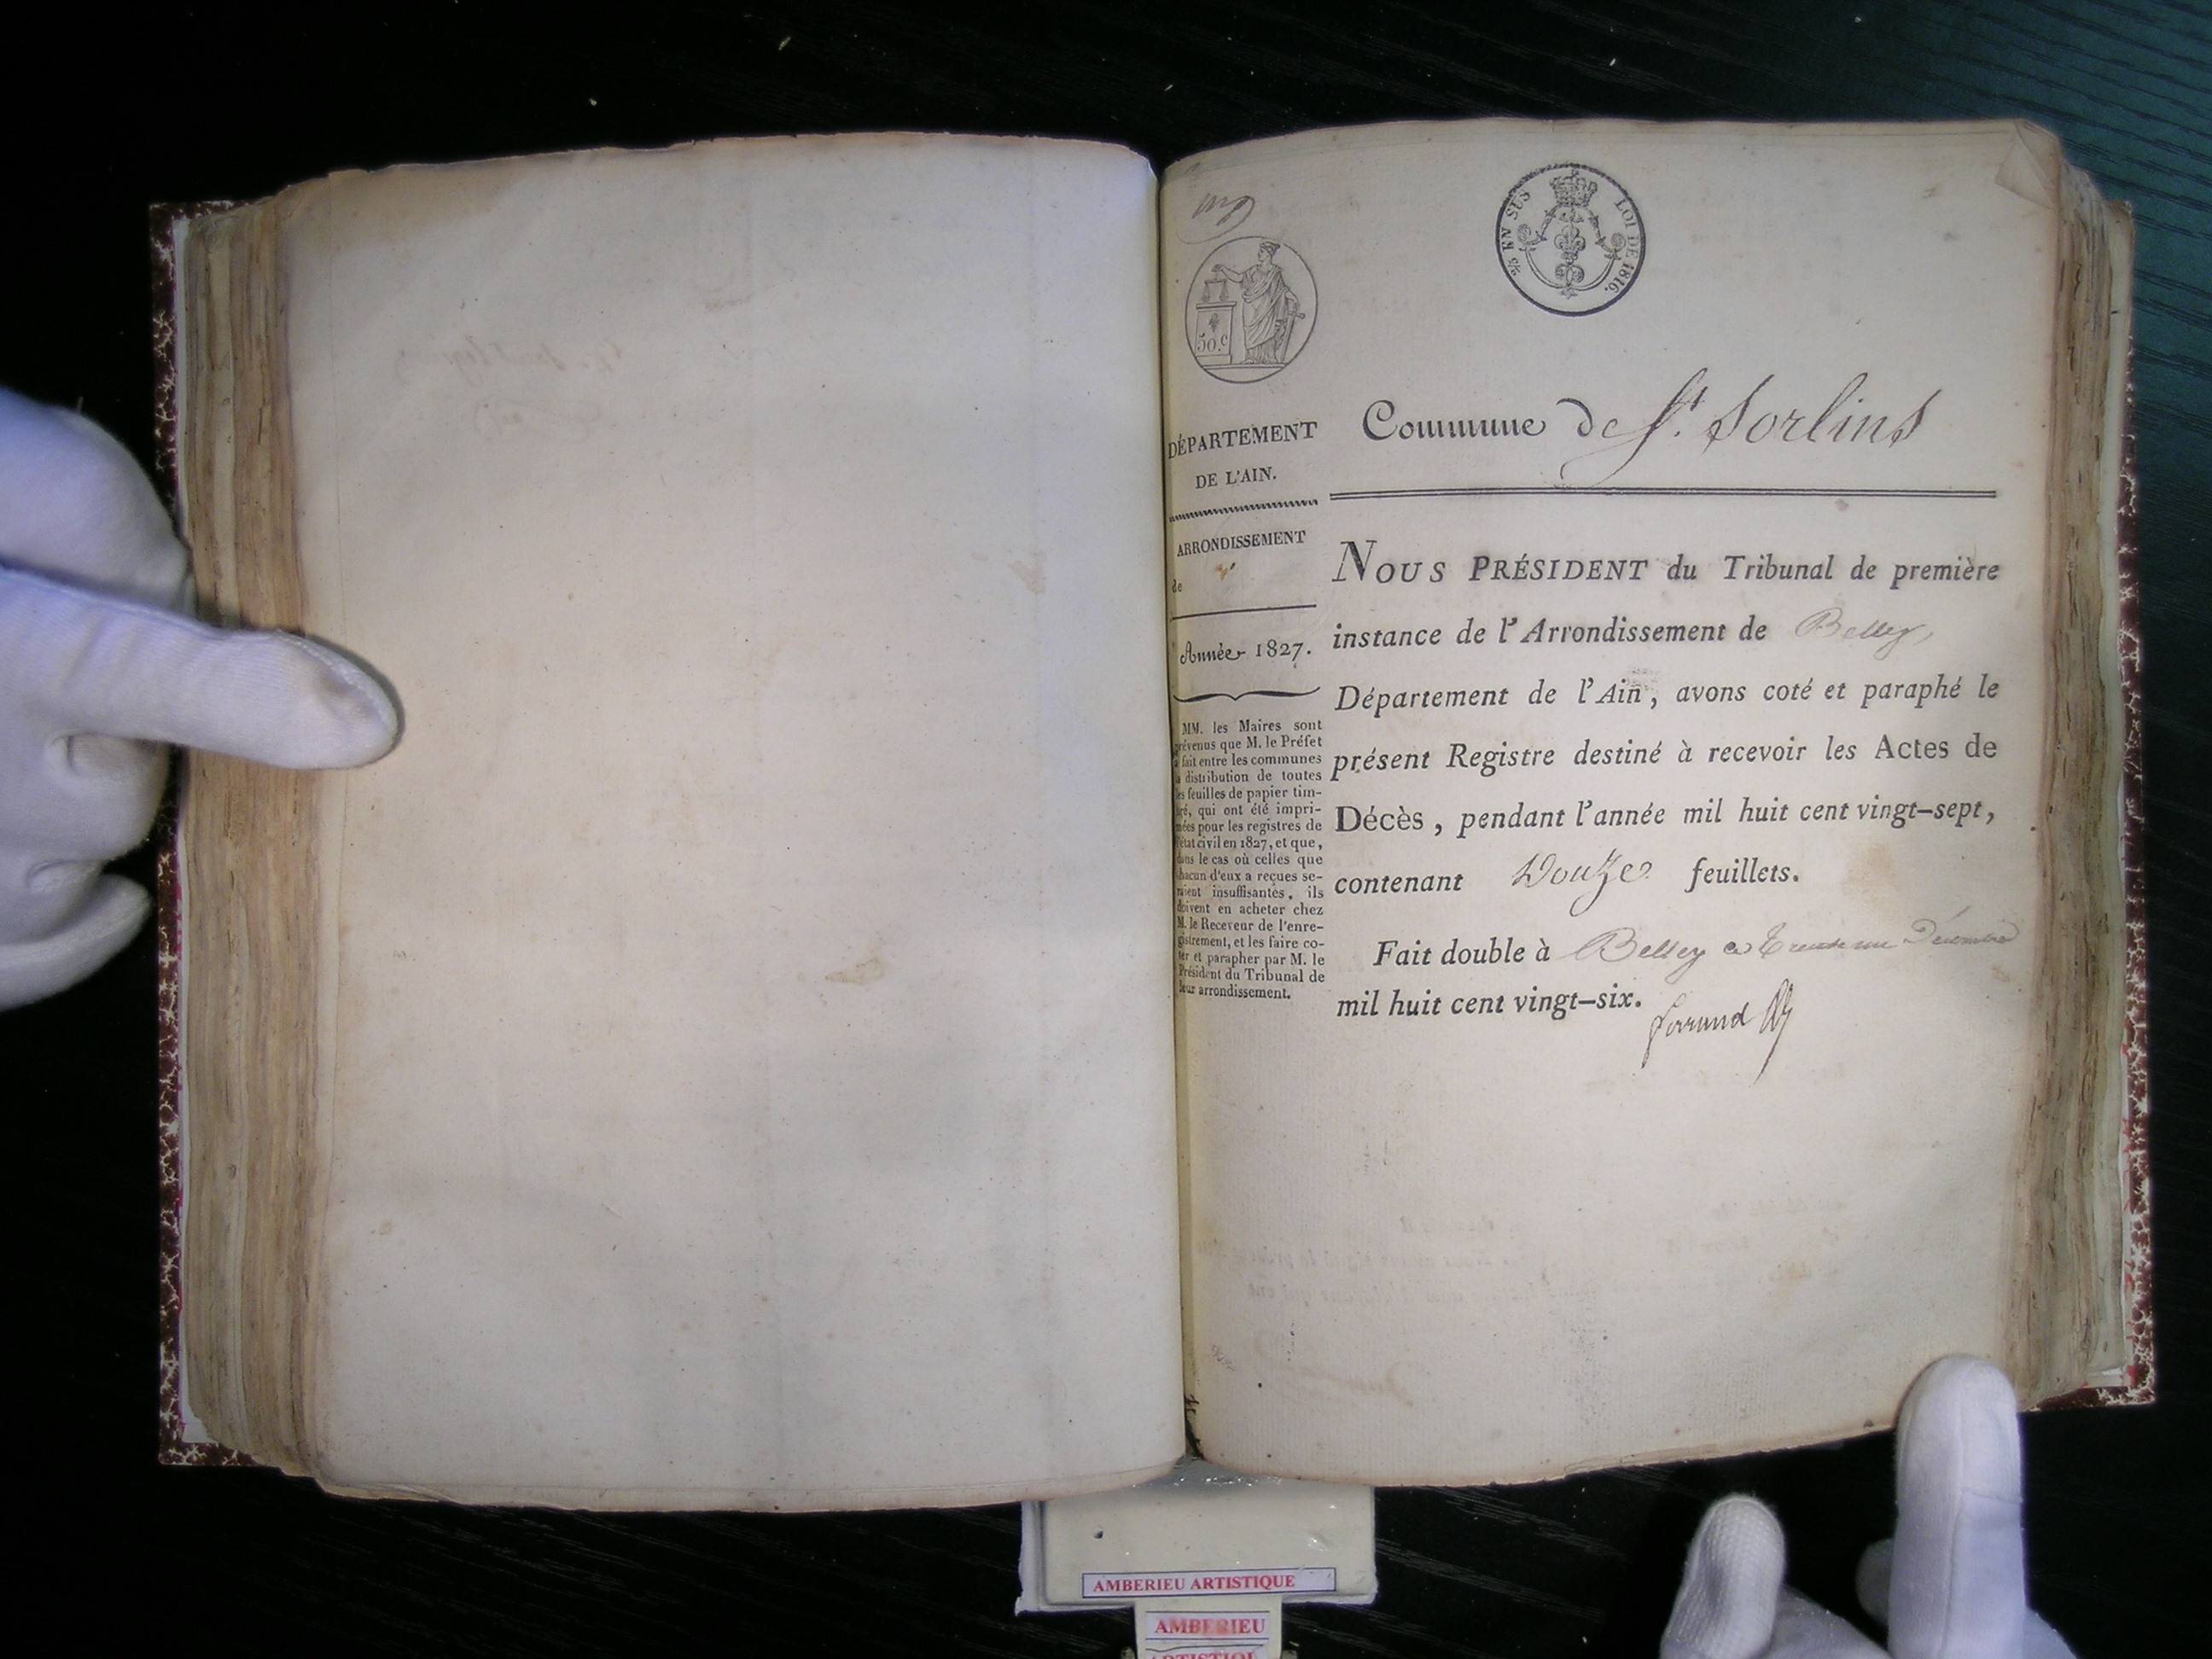 5/5 EN SUS LOI DE 1816.
50.c
DÉPARTEMENT
DE L'AIN.
ARRONDISSEMENT
de
Année 1827.
MM. les Maires sont
prévenus que M. le Préfet
a fait entre les communes
la distribution de toutes
les feuilles de papier tim-
bré, qui ont été impri-
mées pour les registres de
l'état civil en 1827, et que,
dans le cas où celles que
chacun d'eux a reçues se-
raient insuffisantes, ils
doivent en acheter chez
M. le Receveur de l'enre-
gistrement, et les faire co-
ter et parapher par M. le
Président du Tribunal de
leur arrondissement.
Commune de St. Sorlins
NOUS PRÉSIDENT du Tribunal de première
instance de l'Arrondissement de Belley,
Département de l'Ain, avons coté et paraphé le
présent Registre destiné à recevoir les Actes de
Décès, pendant l'année mil huit cent vingt-sept,
contenant Douze feuillets.
Fait double à Belley ce trente un Décembre
mil huit cent vingt-six.
AMBERIEU ARTISTIQUE
AMBERIEU
ARTISTIQUE